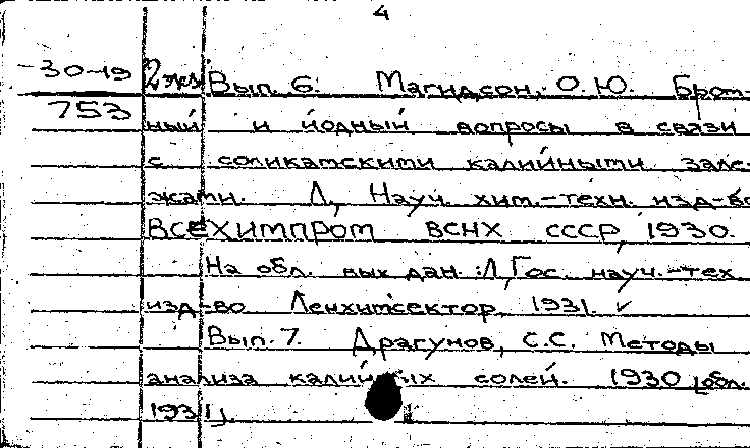 4
30-19 2 экз Вып. 6. Магидсон, О.Ю. Бром-
753 ный и йодный вопросы в связи
с соликамскими калийными зале-
жами. Л., Науч. хим.-техн. изд-во
ВСЕХИМПРОМ ВСНХ СССР, 1930.
На обл. вых. дан.: Л., Гос. науч.-тех
изд-во Ленхимсектор, 1931.
Вып. 7. Драгунов, С.С. Методы
анализа калийных солей. 1930 [обл.
1931].